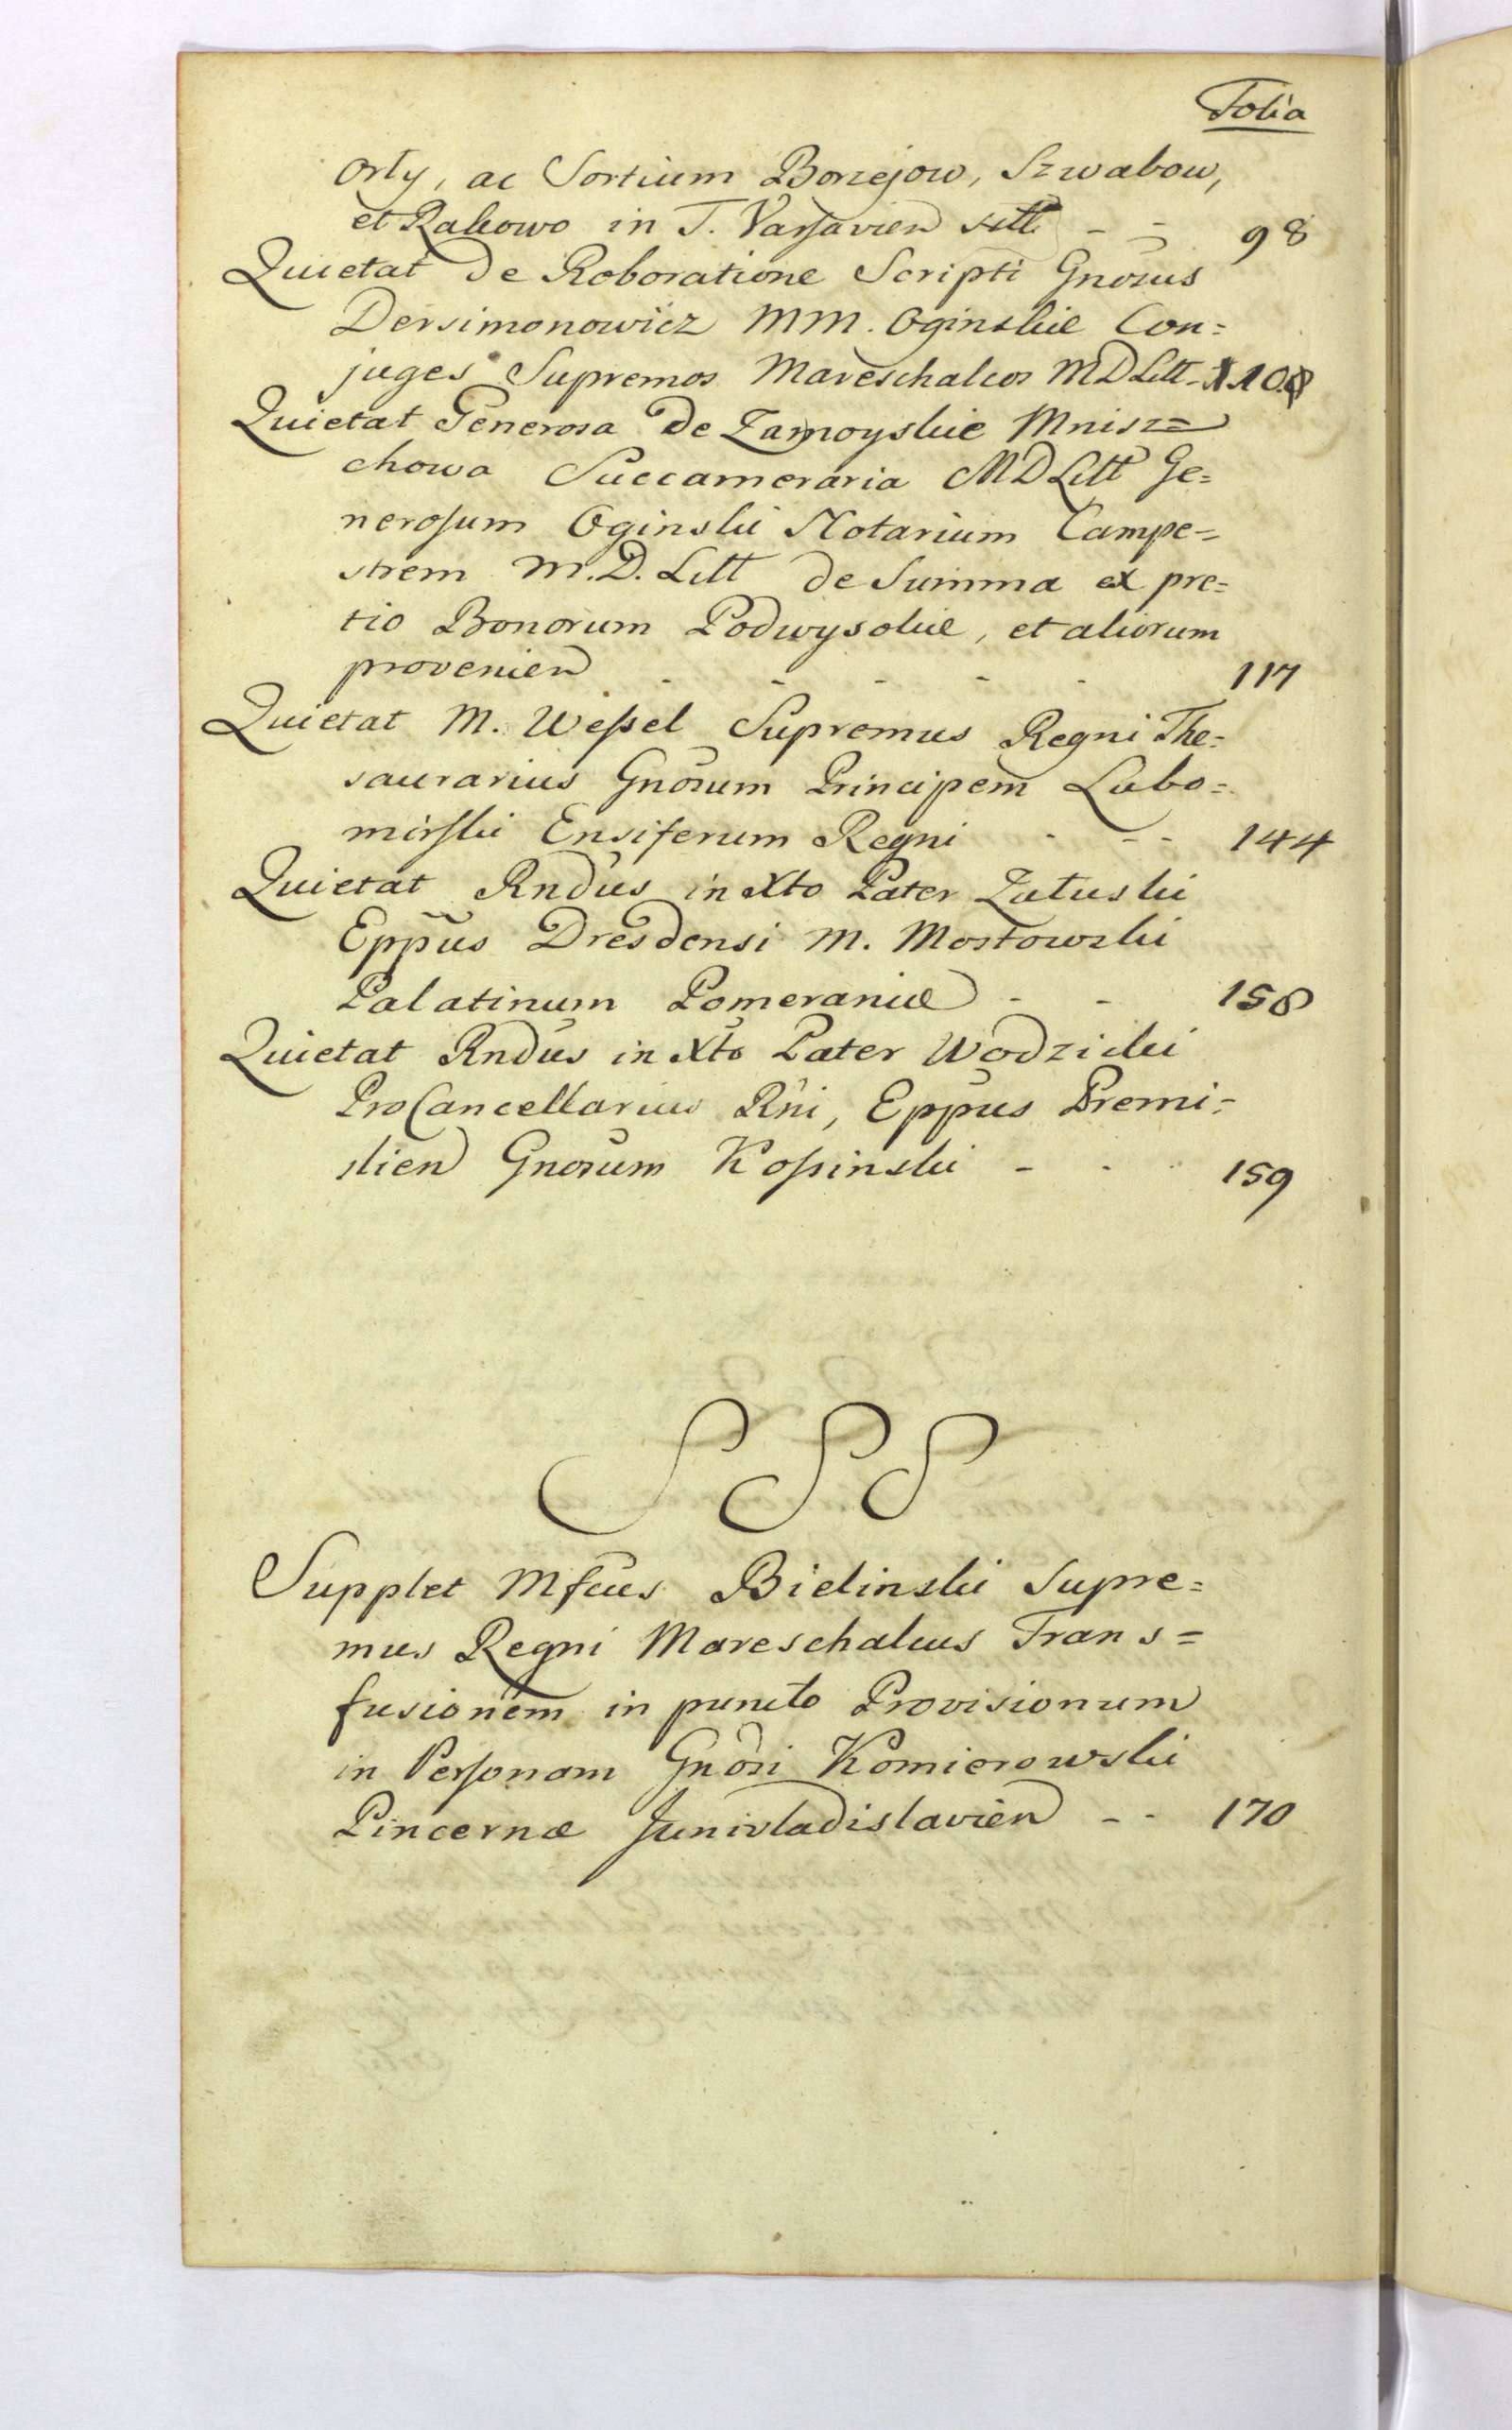 Folia
Orły, ac Sortium Borzejow, Szwabow,
et Rakowo in T. Varsavien sitt - - 98
Quietat de Roboratione Scripti Gnosus
Dersimonowicz MM. Oginskie Con=
juges Supremos Mareschalcos MDLitt - 108
Quietat Generosa de Zamoyskie Mnisz=
chowa Succameraria MDLitt Ge=
nerosum Oginski Notarium Campe=
strem M.D. Litt de Summa ex pre=
tio Bonorum Podwysokie, et aliorum
provenien - - - - - 117
Quietat M. Wessel Supremus Regni The=
saurarius Gnosum Principem Lubo=
mirski Ensiferum Regni - - - 144
Quietat Rndus in Xto Pater Załuski
Eppus Dresdensi M. Mostowski
Palatinum Pomeraniæ - - 158
Quietat Rndus in Xto Pater Wodzicki
ProCancellarius Rni, Eppus Premi=
slien Gnosum Kossinski - - 159
SSS
Supplet Mfcus Bielinski Supre=
mus Regni Mareschalcus Trans=
fusionem in puncto Provisionum
in Personam Gnosi Komierowski
Pincernæ Junivladislavien - - 170